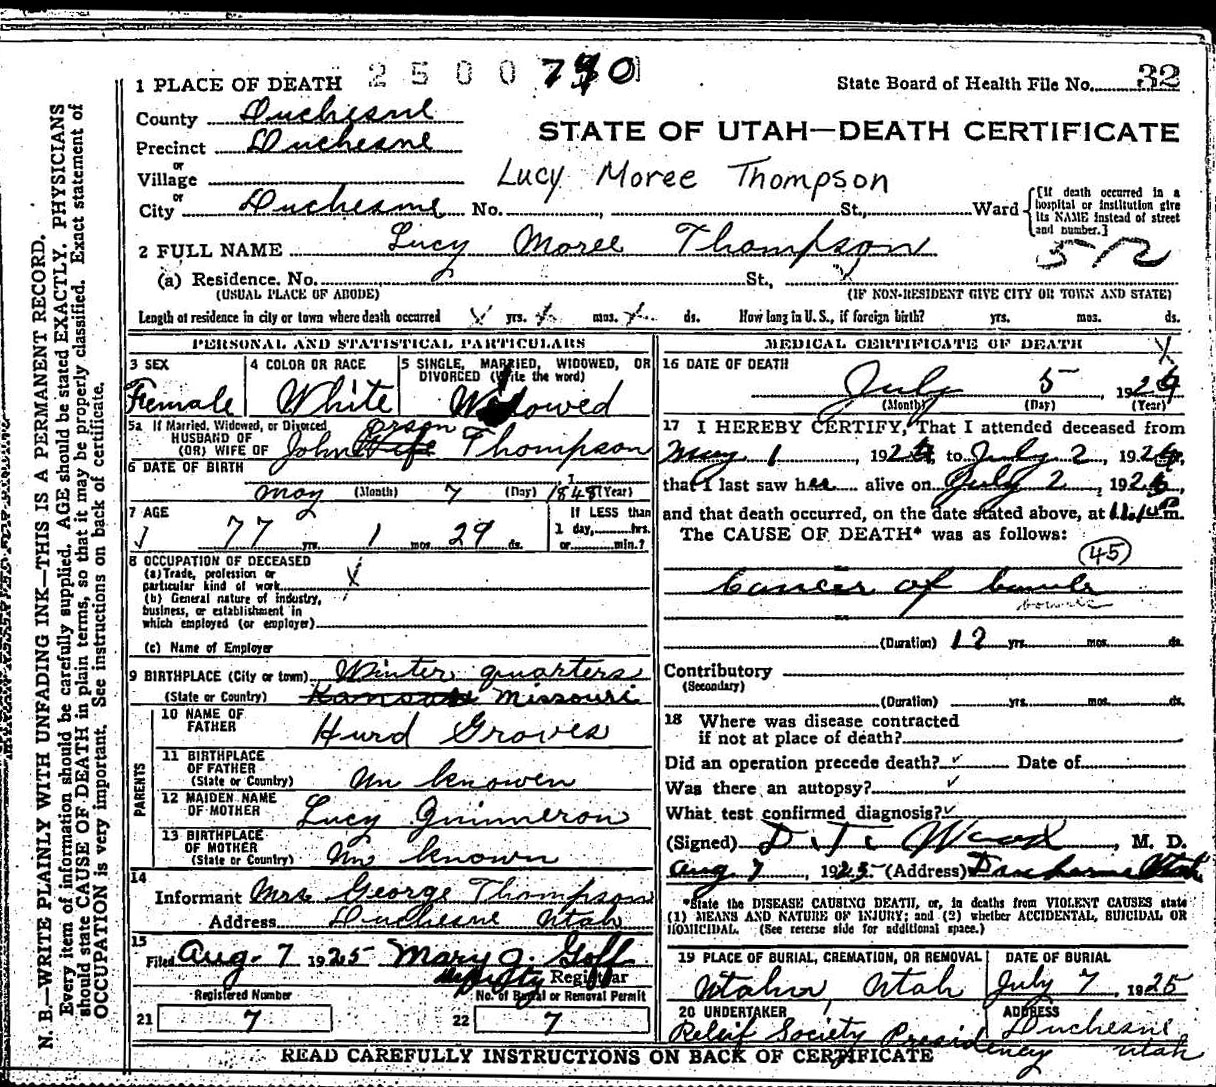 1 PLACE OF DEATH 2 5 0 0 7 0 State Board of Health File No. 32
County Duchesne
STATE OF UTAH—DEATH CERTIFICATE
Precinct Duchesne
or
Village
Lucy Moree Thompson
or
City Duchesne No. , St., Ward {[If death occurred in a hospital or institution give its NAME instead of street and number.]
2 FULL NAME Lucy Moree Thompson
512
(a) Residence. No. St.,
(USUAL PLACE OF ABODE) (IF NON-RESIDENT GIVE CITY OR TOWN AND STATE)
Length of residence in city or town where death occurred X yrs. mos. ds. How long in U.S., if foreign birth? yrs. mos. ds.
PERSONAL AND STATISTICAL PARTICULARS
3 SEX
Female
4 COLOR OR RACE
White
5 SINGLE, MARRIED, WIDOWED, OR
DIVORCED (Write the word)
Widowed
5a If Married, Widowed, or Divorced
HUSBAND OF
(OR) WIFE OF John Orson Thompson
6 DATE OF BIRTH
May (Month) 7 (Day) 1848 (Year)
7 AGE
77 yrs. 1 mos. 29 ds.
If LESS than
1 day, hrs.
or min.?
8 OCCUPATION OF DECEASED
(a) Trade, profession or
particular kind of work X
(b) General nature of industry,
business, or establishment in
which employed (or employer)
(c) Name of Employer
9 BIRTHPLACE (City or town) Winter quarters
(State or Country) Kansas Missouri
PARENTS
10 NAME OF
FATHER Hurd Groves
11 BIRTHPLACE
OF FATHER
(State or Country) Un knowen
12 MAIDEN NAME
OF MOTHER Lucy
13 BIRTHPLACE
OF MOTHER
(State or Country) Un known
14
Informant Mrs. George Thompson
Address Duchesne Utah
15
Filed Aug. 7 1925 Mary J. Goff
Deputy Registrar
Registered Number
21 7
No. of Burial or Removal Permit
22 7
MEDICAL CERTIFICATE OF DEATH X
16 DATE OF DEATH
July 5 192
(Month) (Day) (Year)
17 I HEREBY CERTIFY, That I attended deceased from
May 1, 192 , to July 2, 192 ,
that I last saw her alive on July 2, 192 ,
and that death occurred, on the date stated above, at m.
The CAUSE OF DEATH* was as follows:
45
Cancer of bowels
bowels
(Duration) 12 yrs. mos. ds.
Contributory
(Secondary)
(Duration) yrs. mos. ds.
18 Where was disease contracted
if not at place of death?
Did an operation precede death? Date of
Was there an autopsy?
What test confirmed diagnosis?
(Signed) Wood, M. D.
Aug 7, 1925 (Address) Duchesne Utah
*State the DISEASE CAUSING DEATH, or, in deaths from VIOLENT CAUSES state
(1) MEANS AND NATURE OF INJURY; and (2) whether ACCIDENTAL, SUICIDAL OR
HOMICIDAL. (See reverse side for additional space.)
19 PLACE OF BURIAL, CREMATION, OR REMOVAL
Utahn, Utah
DATE OF BURIAL
July 7, 1925
20 UNDERTAKER
Relief Society Presidency
ADDRESS
Duchesne
Utah
READ CAREFULLY INSTRUCTIONS ON BACK OF CERTIFICATE
N. B.—WRITE PLAINLY WITH UNFADING INK—THIS IS A PERMANENT RECORD.
Every item of information should be carefully supplied. AGE should be stated EXACTLY. PHYSICIANS
should state CAUSE OF DEATH in plain terms, so that it may be properly classified. Exact statement of
OCCUPATION is very important. See instructions on back of certificate.